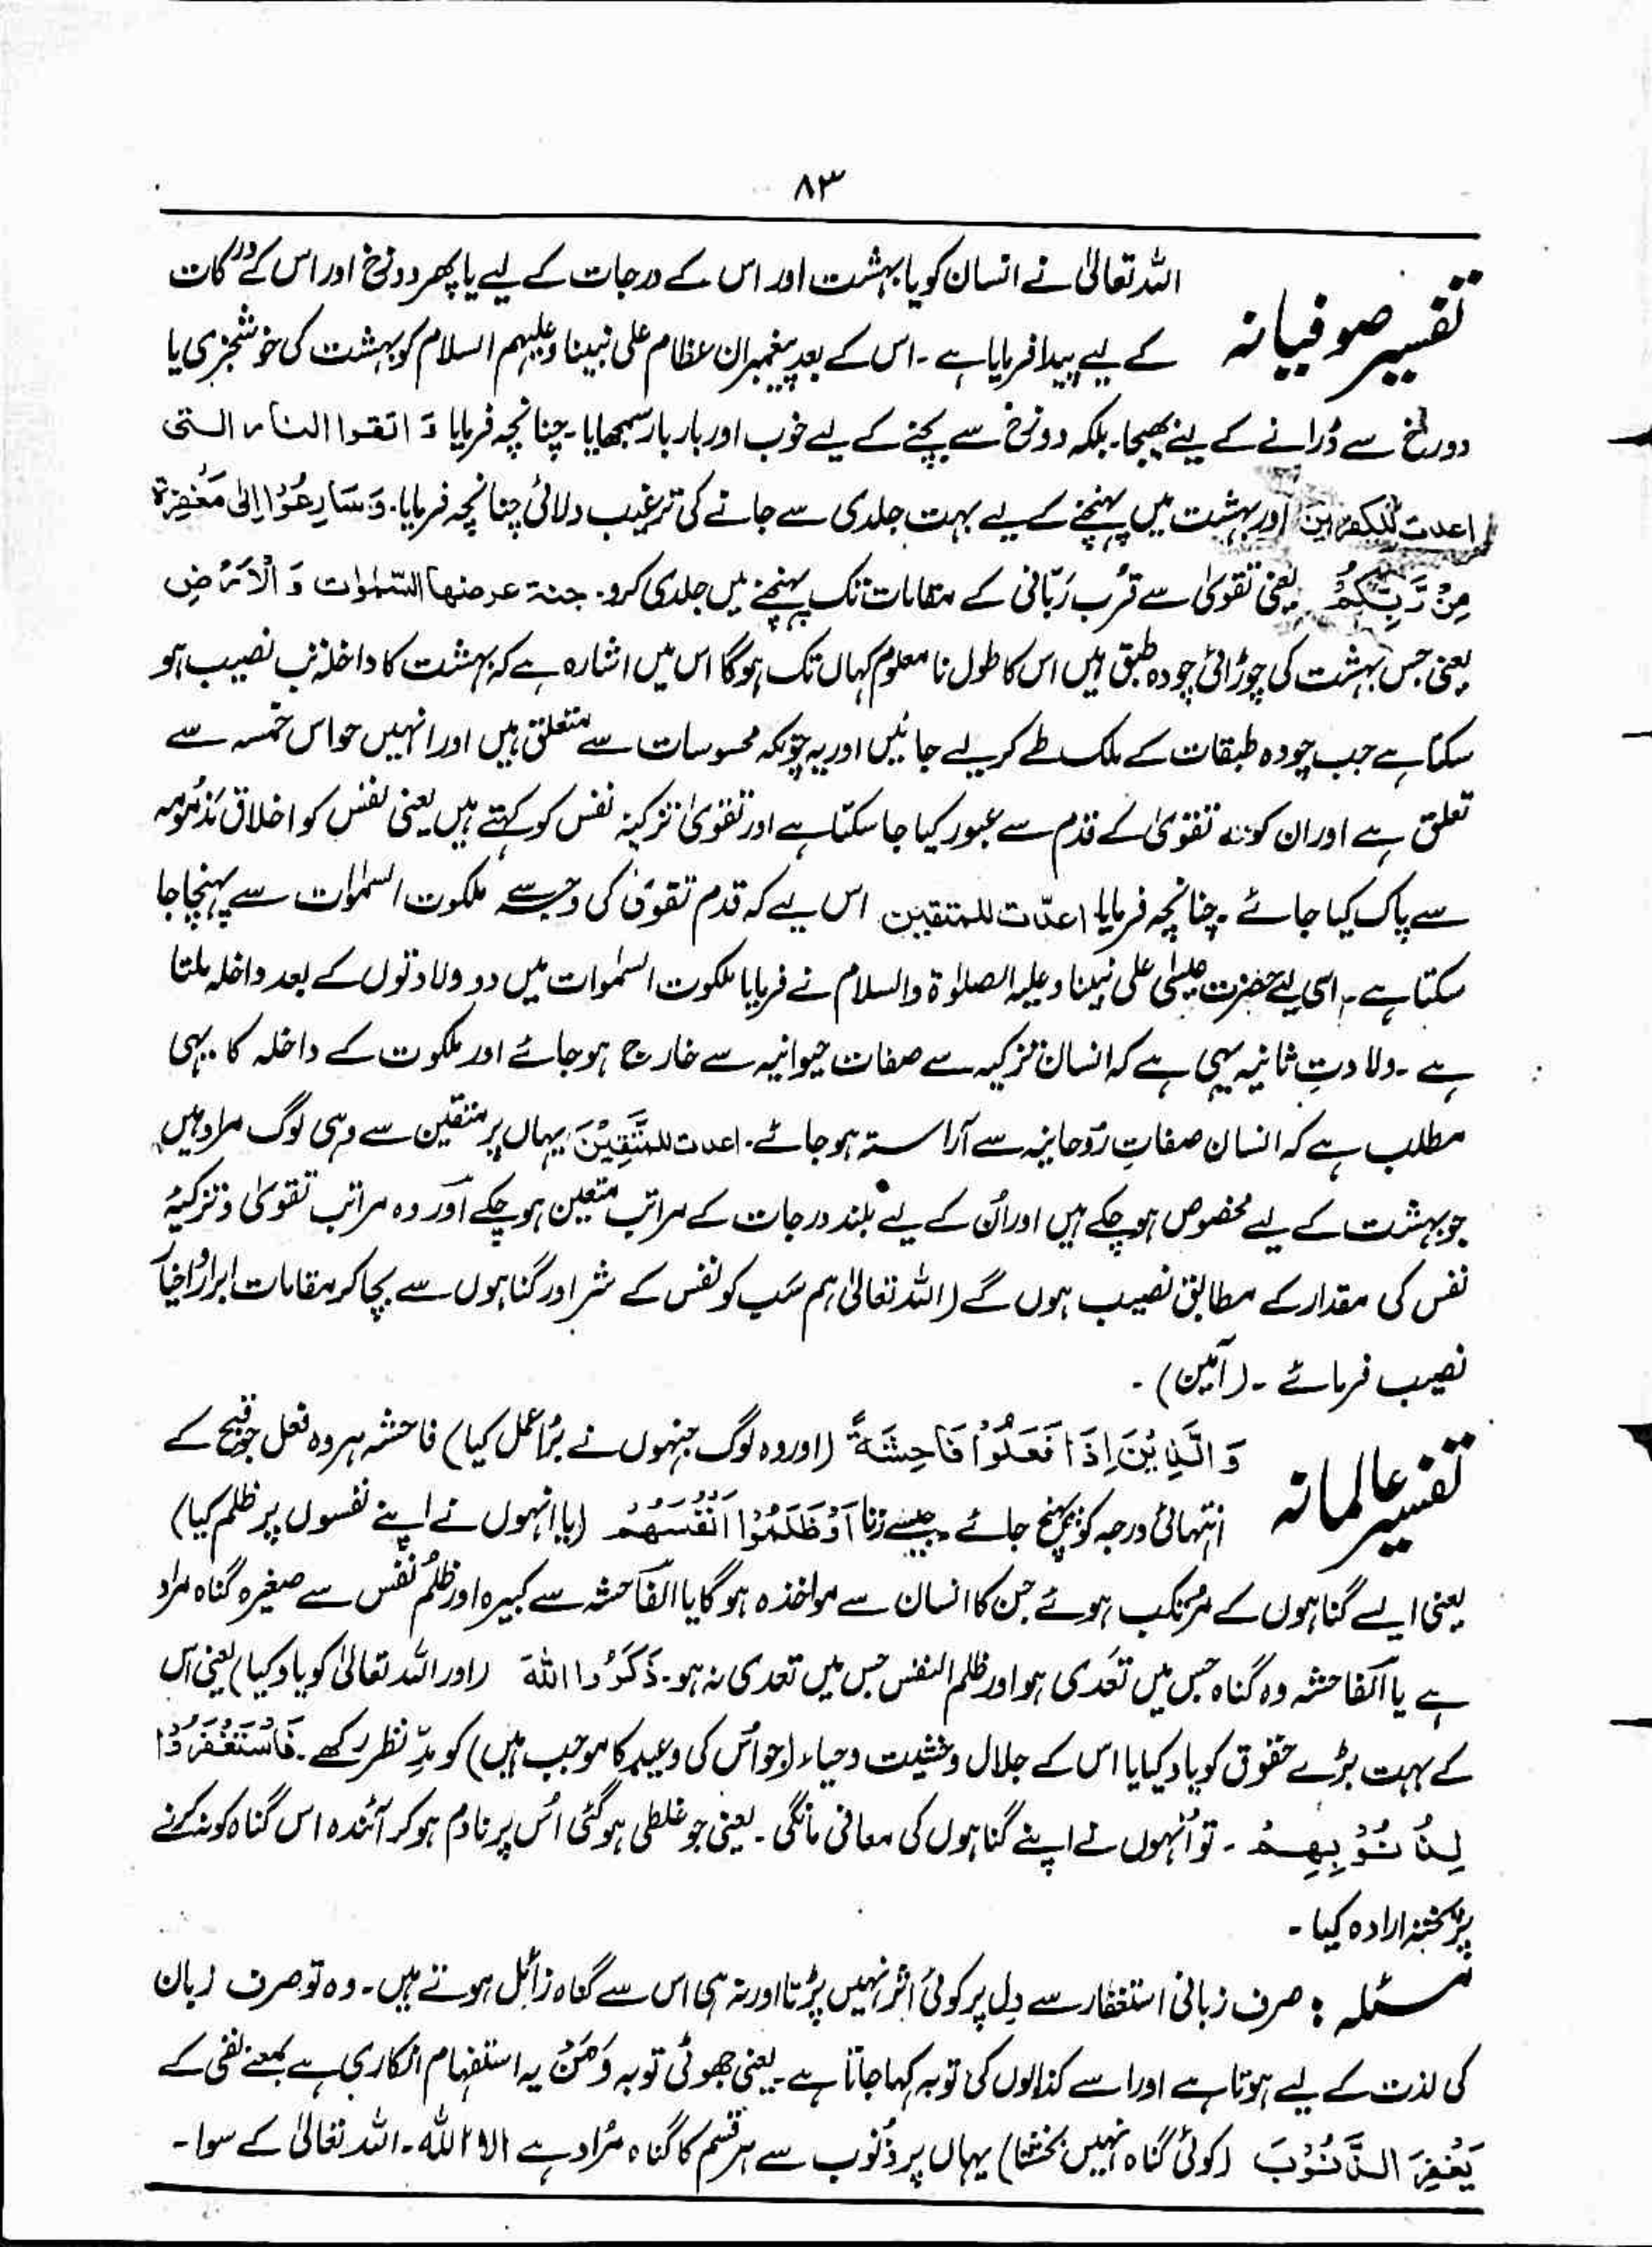 ۸۳
تفسیر صوفیانہ
اللہ تعالیٰ نے انسان کو یا بہشت اور اس کے درجات کے لیے یا پھر دوزخ اور اس کے درکات
کے لیے پیدا فرمایا ہے ۔ اس کے بعد پیغمبران عظام علی نبینا وعلیہم السلام کو بہشت کی خوشخبری یا
دورخ سے ڈرانے کے لیے بھیجا۔ بلکہ دوزخ سے بچنے کے لیے خوب اور بار بار سمجھایا۔ چنانچہ فرمایا وَ اتقوا النار التی
اعدت للکٰفرین اور بہشت میں پہنچنے کے لیے بہت جلدی سے جانے کی ترغیب دلائی چنانچہ فرمایا۔ وَسَارِعُوْا اِلیٰ مَغْفِرَۃ
مِنْ رَّبِّکُمْ یعنی تقویٰ سے قُرب رَبّانی کے مقامات تک پہنچنے میں جلدی کرو۔ جنۃ عرضھا السّمٰوات وَ الْاَرْضِ
یعنی جس بہشت کی چوڑائی چودہ طبق ہیں اس کا طول نا معلوم کہاں تک ہوگا اس میں اشارہ ہے کہ بہشت کا داخلہ تب نصیب ہو
سکتا ہے جب چودہ طبقات کے ملک طے کر لیے جائیں اور یہ چونکہ محسوسات سے متعلق ہیں اور انہیں حواس خمسہ سے
تعلق ہے اور ان کو تقویٰ کے قدم سے عبور کیا جا سکتا ہے اور تقویٰ تزکیۂ نفس کو کہتے ہیں یعنی نفس کو اخلاق مذمومہ
سے پاک کیا جائے ۔ چنانچہ فرمایا اعدّت للمتقین اس لیے کہ قدم تقویٰ کی وجہ سے ملکوت السمٰوات سے پہنچا جا
سکتا ہے ۔ اسی لیے حضرت عیسٰی علی نبینا وعلیہ الصلوٰۃ والسلام نے فرمایا ملکوت السمٰوات میں دو ولادتوں کے بعد داخلہ ملتا
ہے ۔ ولادتِ ثانیہ یہی ہے کہ انسان تزکیہ سے صفات حیوانیہ سے خارج ہو جائے اور ملکوت کے داخلہ کا یہی
مطلب ہے کہ انسان صفاتِ روحانیہ سے آراستہ ہو جائے۔ اعدت للمُتَّقِیْنَ یہاں پر متقین سے وہی لوگ مراد ہیں
جو بہشت کے لیے مخصوص ہو چکے ہیں اور اُن کے لیے بلند درجات کے مراتب متعین ہو چکے اور وہ مراتب تقویٰ و تزکیۂ
نفس کی مقدار کے مطابق نصیب ہوں گے (اللہ تعالیٰ ہم سب کو نفس کے شر اور گناہوں سے بچا کر مقامات ابرار و اخیار
نصیب فرمائے ۔ (آمین) ۔
تفسیر عالمانہ
وَ الَّذِیْنَ اِذَا فَعَلُوْا فَاحِشَۃً (اور وہ لوگ جنہوں نے بُرا عمل کیا) فاحشہ ہر وہ فعل جو قبیح کے
انتہائی درجہ کو پہنچ جائے جیسے زنا اَوْ ظَلَمُوْا اَنْفُسَھُمْ (یا انہوں نے اپنے نفسوں پر ظلم کیا)
یعنی ایسے گناہوں کے مرتکب ہوئے جن کا انسان سے مواخذہ ہو گا یا الفاحشہ سے کبیرہ اور ظلم نفس سے صغیرہ گناہ مراد
ہے یا الفاحشہ وہ گناہ جس میں تعدی ہو اور ظلم النفس جس میں تعدی نہ ہو۔ ذَکَرُوا اللہَ (اور اللہ تعالیٰ کو یاد کیا) یعنی اس
کے بہت بڑے حقوق کو یاد کیا یا اس کے جلال وخشیت وحیاء (جو اس کی وعید کا موجب ہیں) کو مدِّ نظر رکھے ۔ فَاسْتَغْفَرُوْا
لِذُنُوْبِھِمْ ۔ تو اُنہوں نے اپنے گناہوں کی معافی مانگی ۔ یعنی جو غلطی ہوگئی اُس پر نادم ہو کر آئندہ اس گناہ کو نہ کرنے
پر پختہ ارادہ کیا ۔
مسئلہ : صرف زبانی استغفار سے دل پر کوئی اثر نہیں پڑتا اور نہ ہی اس سے گناہ زائل ہوتے ہیں ۔ وہ تو صرف زبان
کی لذت کے لیے ہوتا ہے اور اسے کذابوں کی توبہ کہا جاتا ہے ۔ یعنی جھوٹی توبہ وَمَنْ یہ استفہام انکاری ہے بمعنے نفی کے
یَغْفِرُ الذُّنُوْبَ (کوئی گناہ نہیں بخشتا) یہاں پر ذُنوب سے ہر قسم کا گناہ مُراد ہے الا اللہ ۔ اللہ تعالیٰ کے سوا ۔